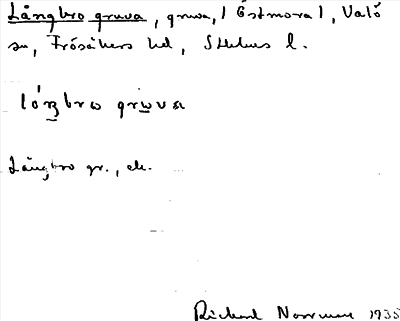 Långbro gruva, gruva, i Östmora I, Valö
sn, Frösåkers hd, Sthlms l.
Långbro gr., ek.
Richard Norrman 1935